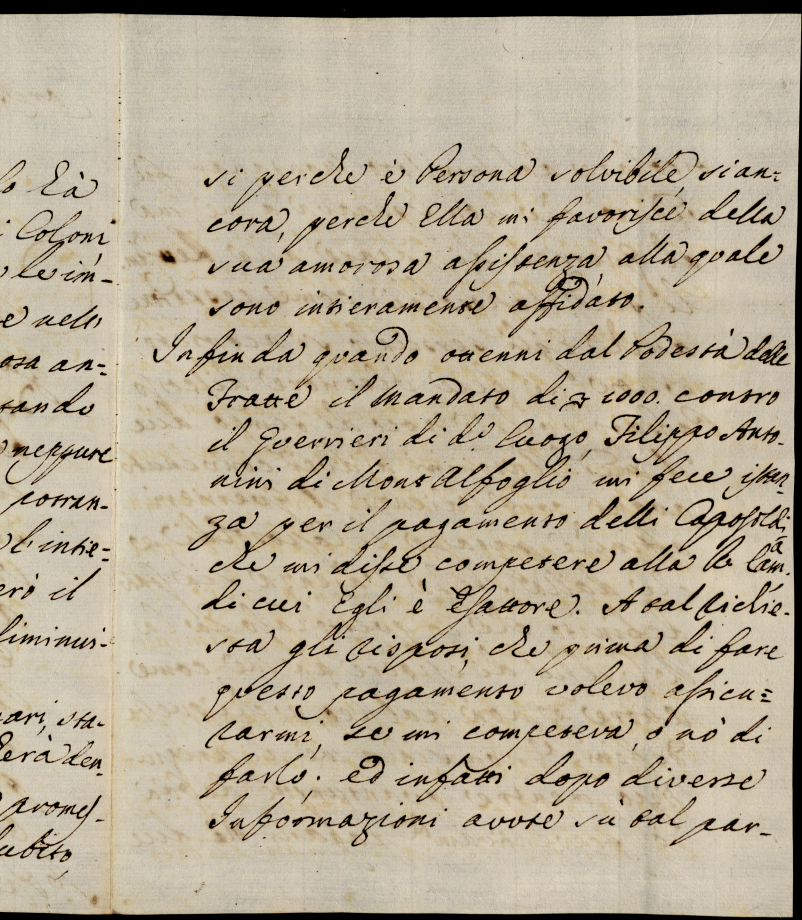 lo Eà
i Coloni
le im-
e nelli
osa an=
tando
neppure
cotran-
l'intie=
erò il
diminui-
ari, sta-
erà den-
promes-
subito,
si perche è Persona solvibile, si an=
cora, perche Ella mi favorisce della
sua amorosa assistenza, alla quale
sono intieramente affidato.
Infin da quando ottenni dal Podestà delle
Fratte il Mandato di 1000. contro
il Guerrieri di d.º Luogo, Filippo Anto-
nini di Mont'Alfoglio mi fece istan-
za per il pagamento delli Caposoldi
che mi disse competere alla R. Cam.ª
di cui Egli è Esattore. A tal richie-
sta gli risposi, che prima di fare
questo pagamento volevo assicu=
rarmi, se mi competeva, o nò di
farlo; ed infatti dopo diverse
Informazioni avute sù tal par-